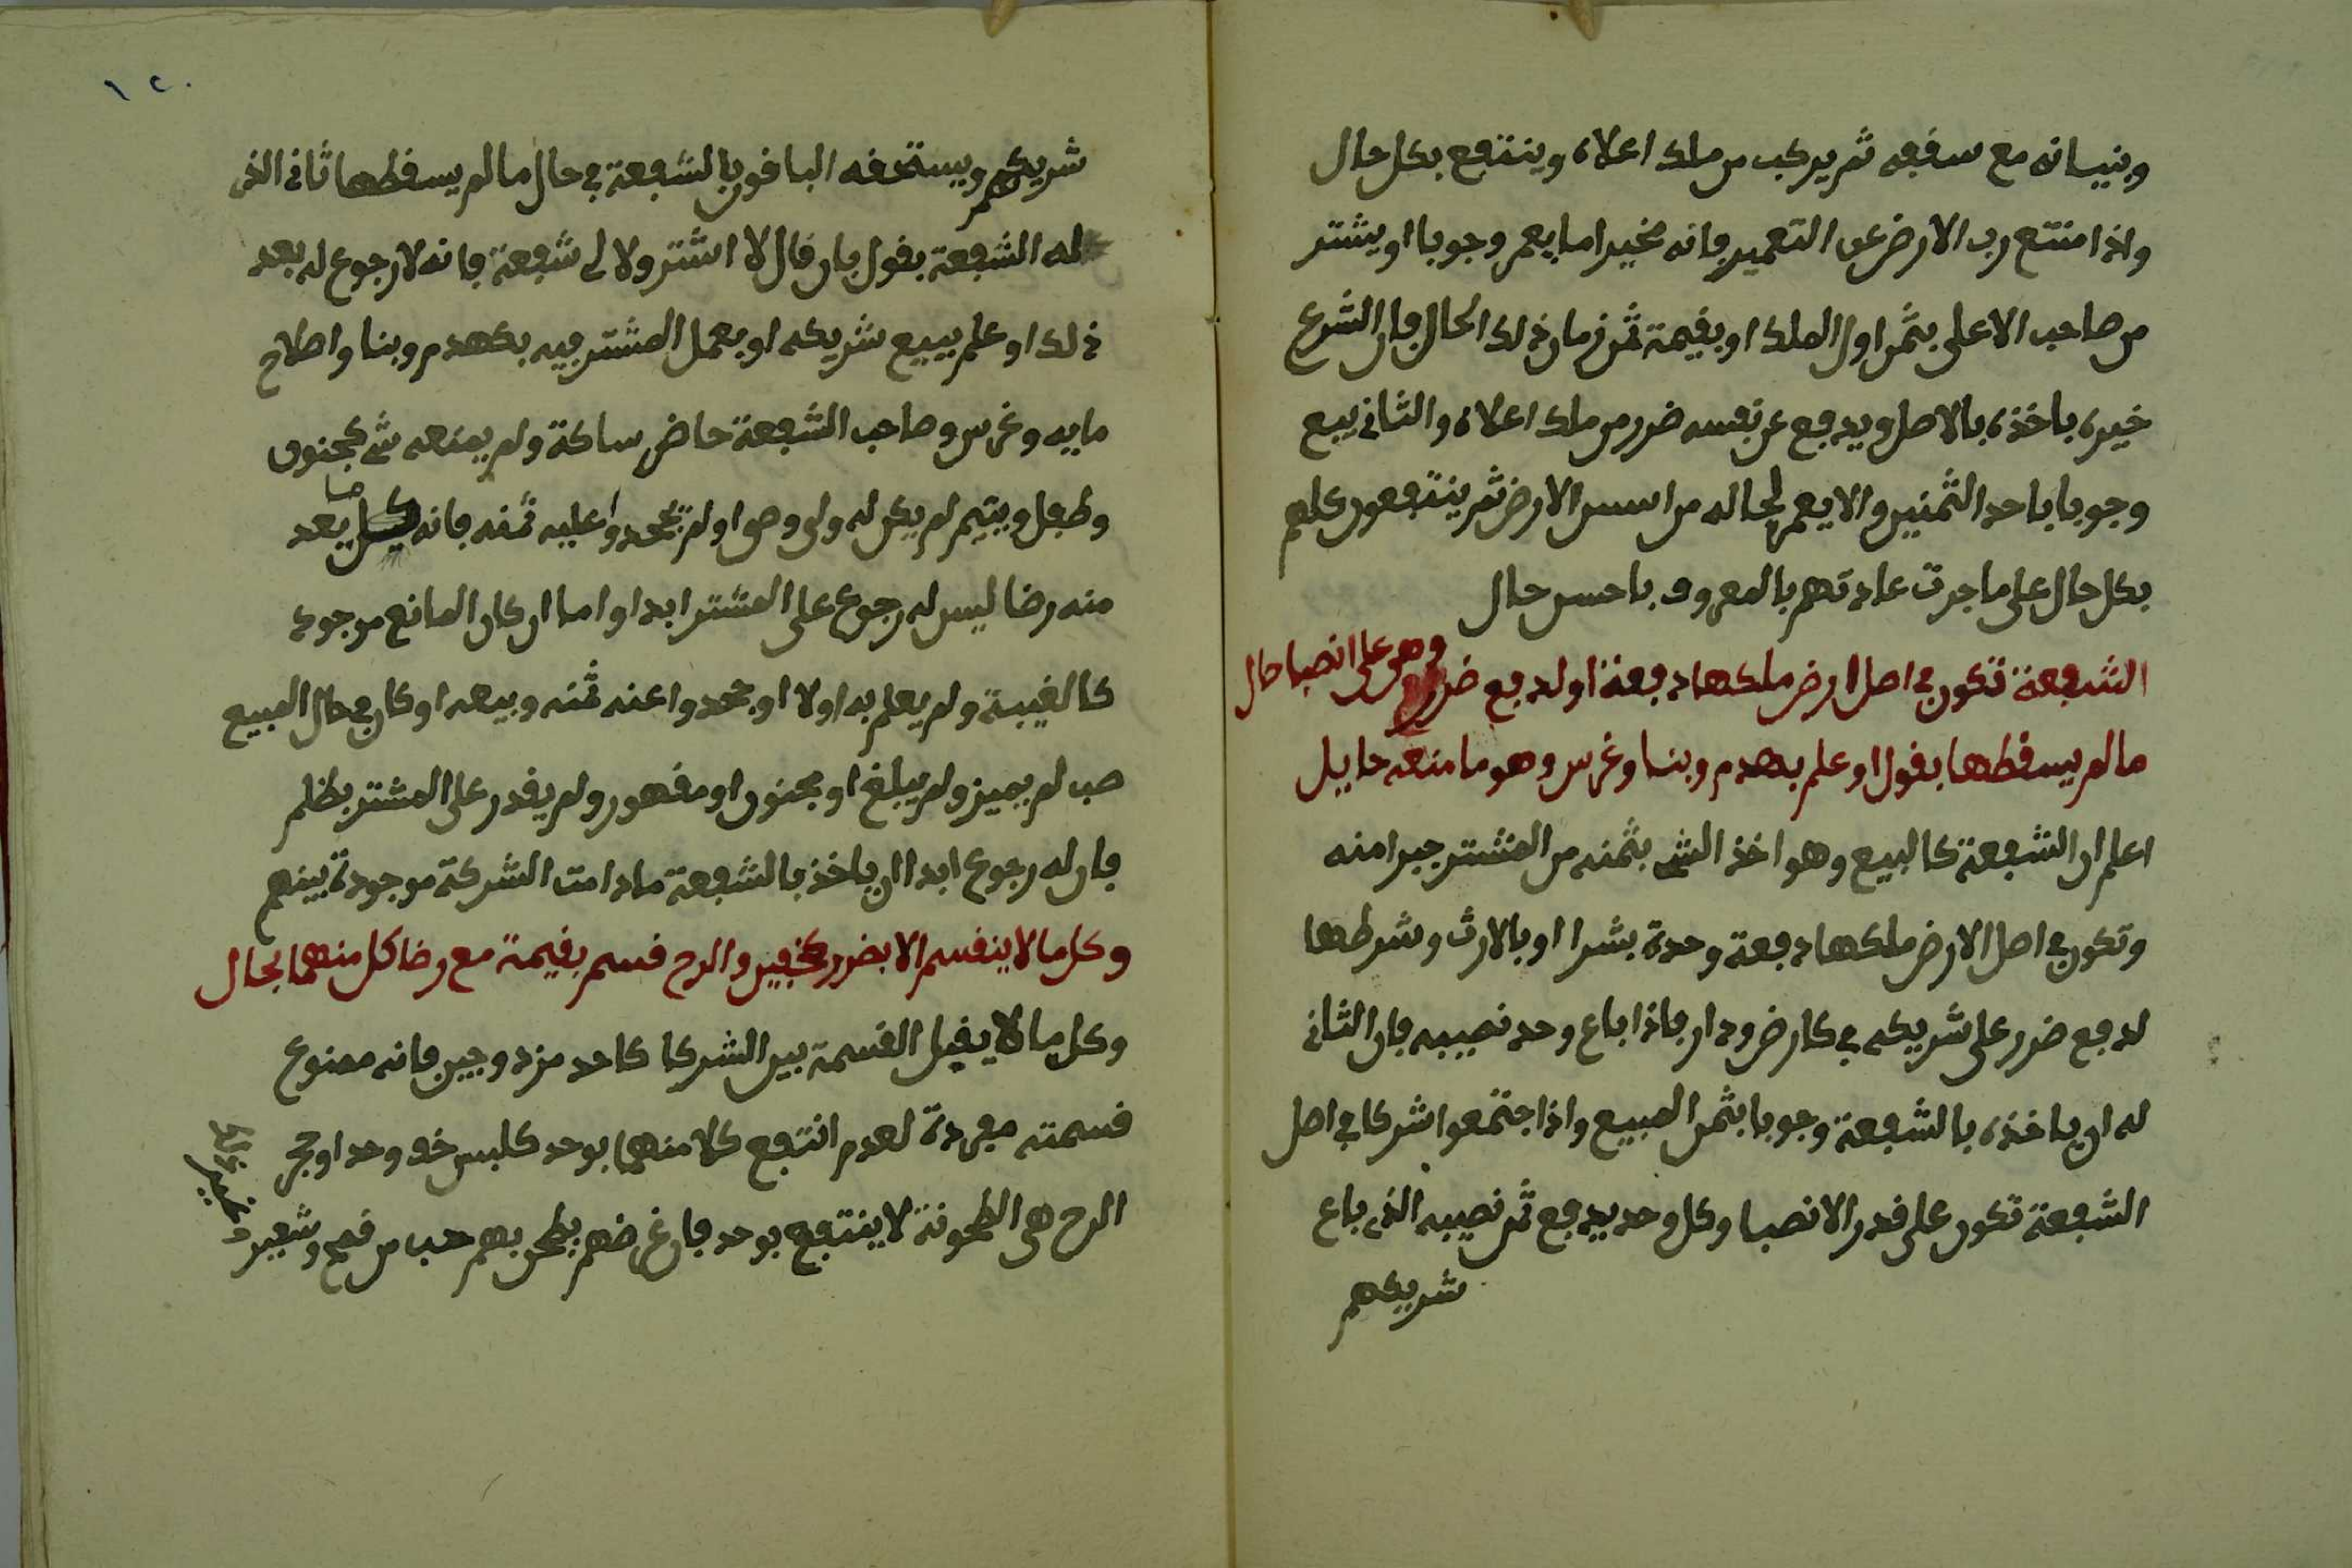 وبنيانه مع سقفه ثم يركب من ملك اعلاه وينتفع بكل حال
واذا منتع رب الارض عن التعمير فانه مخير اما يعمر وجوبا او يشتر
من صاحب الاعلى بثمن اول الملك او بقيمة ثمن زمان ذلك الحال فان الشرع
خيره ياخذه بالاصل ويدفع عن نفسه ضرر من ملك اعلاه والثاني يبيع
وجوبا باحد الثمنين والا يعمر لحاله من اسس الارض ثم ينتفعون كلهم
بكل حال على ما جرت عادتهم بالمعروف باحسن حال
الشفعة تكون في اصل ارض ملكها دفعة او لدفع ضرر وهو على انصبا حال
ما لم يسقطها بقول او علم بهدم وبنا وغرس وهو ما منعه حايل
اعلم ان الشفعة كالبيع وهو اخذ الشي بثمنه من المشتر جبرا منه
وتكون في اصل الارض ملكها دفعة وحدة بشرا او بالارث وشرطها
لدفع ضرر على شريكه في كارض ودار فاذا باع وحد نصيبه فان الثاني
له ان ياخذه بالشفعة وجوبا بثمن المبيع واذا جتمعوا شركا في اصل
الشفعة تكون على قدر الانصبا وكل وحد يدفع ثمن نصيبه الذي باع
شريكهم
١٢٠
شريكهم ويستحقه الباقون بالشفعة في حال ما لم يسقطها ثاني الذي
له الشفعة بقول فان قال لا اشتر ولا لي شفعة فانه لا رجوع له بعد
ذلك او علم ببيع شريكه او بعمل المشتر فيه بكهدم وبنا واصلاح
ما فيه وغرس وصاحب الشفعة حاضر ساكة ولم يمنعه شي كجنون
وطفل ويتيم لم يكن له ولى وصى او لم يجحدوا عليه ثمنه فانه يعد
منه رضا ليس له رجوع على المشتر ابدا واما ان كان المانع موجود
كالغيبة ولم يعلم به اولا او جحدوا عنه ثمنه وبيعه او كان في حال المبيع
صب لم يميز ولم يبلغ او مجنون او مقهور ولم يقدر على المشتر بظلم
فان له رجوع ابدا ان ياخذ بالشفعة ما دامت الشركة موجودة بينهم
وكل ما لا ينقسم الا بضرر كخفين والرح قسم بقيمة مع رضا كل منهما بحال
وكل ما لا يقبل القسمة بين الشركا كاحد مزدوجين فانه ممنوع
قسمته مفردة لعدم انتفع كلا منهما بوحد كلبس خف وحد او حجر
الرح هى الطحونة لا ينتفع بوحد فان غرضهم يطحن بهم حب من قمح وشعير